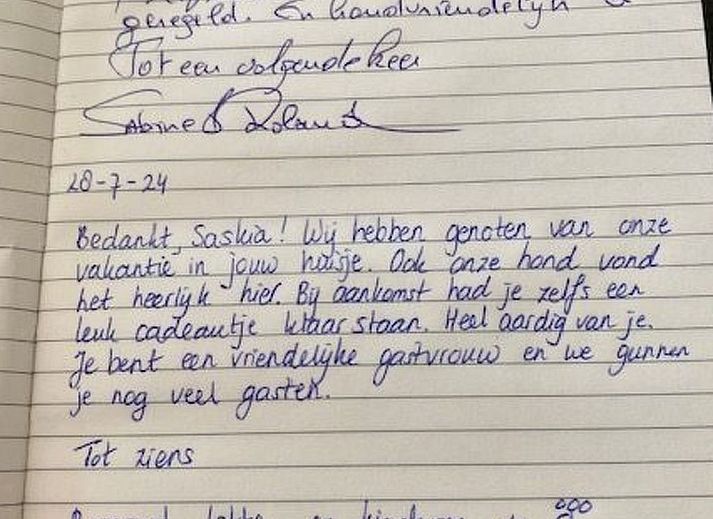 geregeld. En hondvriendelijk
Tot een volgende keer
Sabine & Roland
28-7-24
Bedankt, Saskia! Wij hebben genoten van onze
vakantie in jouw huisje. Ook onze hond vond
het heerlijk hier. Bij aankomst had je zelfs een
leuk cadeautje klaar staan. Heel aardig van je.
Je bent een vriendelijke gastvrouw en we gunnen
je nog veel gasten.
Tot ziens